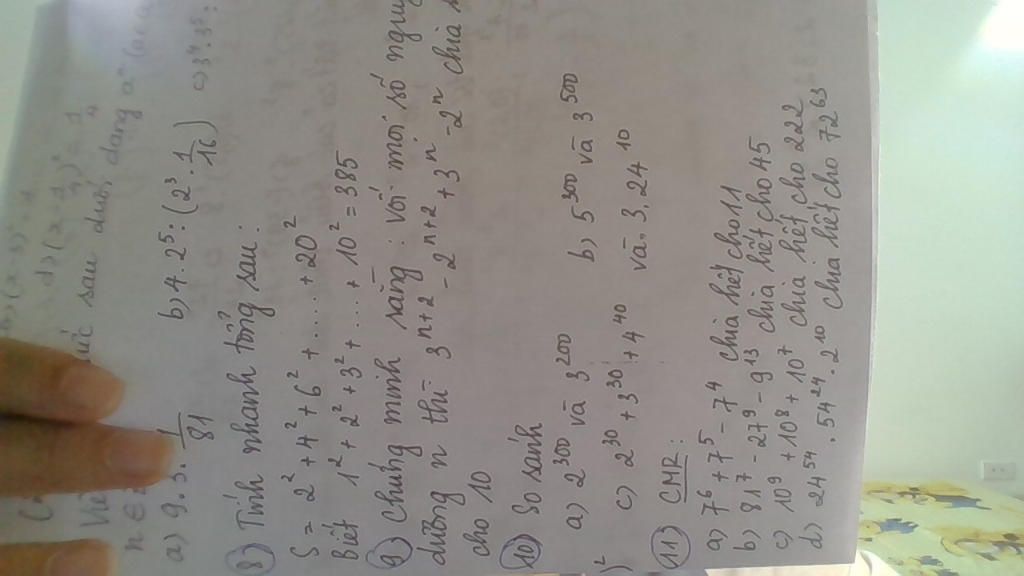 d) (x -
Viế
ức sau dưới dạng aⁿ (a
n ∈
a) 9.3.1/81 b) 4.2⁵:(2³.1/16) c) 3⁴.3⁵:
8) Tính nhanh tổng sau:
S = 2² + 4² + 6² + ..... + 20²
Biết 1² + 2² + 3² + .... + 10² = 385
9) Chứng minh rằng: với mọi số nguy
dương n thì 3ⁿ⁺² - 2ⁿ⁺² + 3ⁿ - 2ⁿ chia
cho 10
10) So sánh
a) 2³⁰⁰ và 3²⁰⁰ b) 5³⁰⁰ và 3⁵⁰⁰
c) 2³⁰ + 3³⁰ + 4⁴⁰ và 3.24¹⁰
11) CMR:
a) 7⁶ + 7⁵ - 7⁴ chia hết cho 11
b) 81⁷ - 27⁹ - 9¹³ chia hết cho 45
c) 10⁹ + 10⁸ + 10⁷ chia hết cho 222
d) 24⁵⁴.54²⁴.2¹⁰ chia hết cho 72⁶³